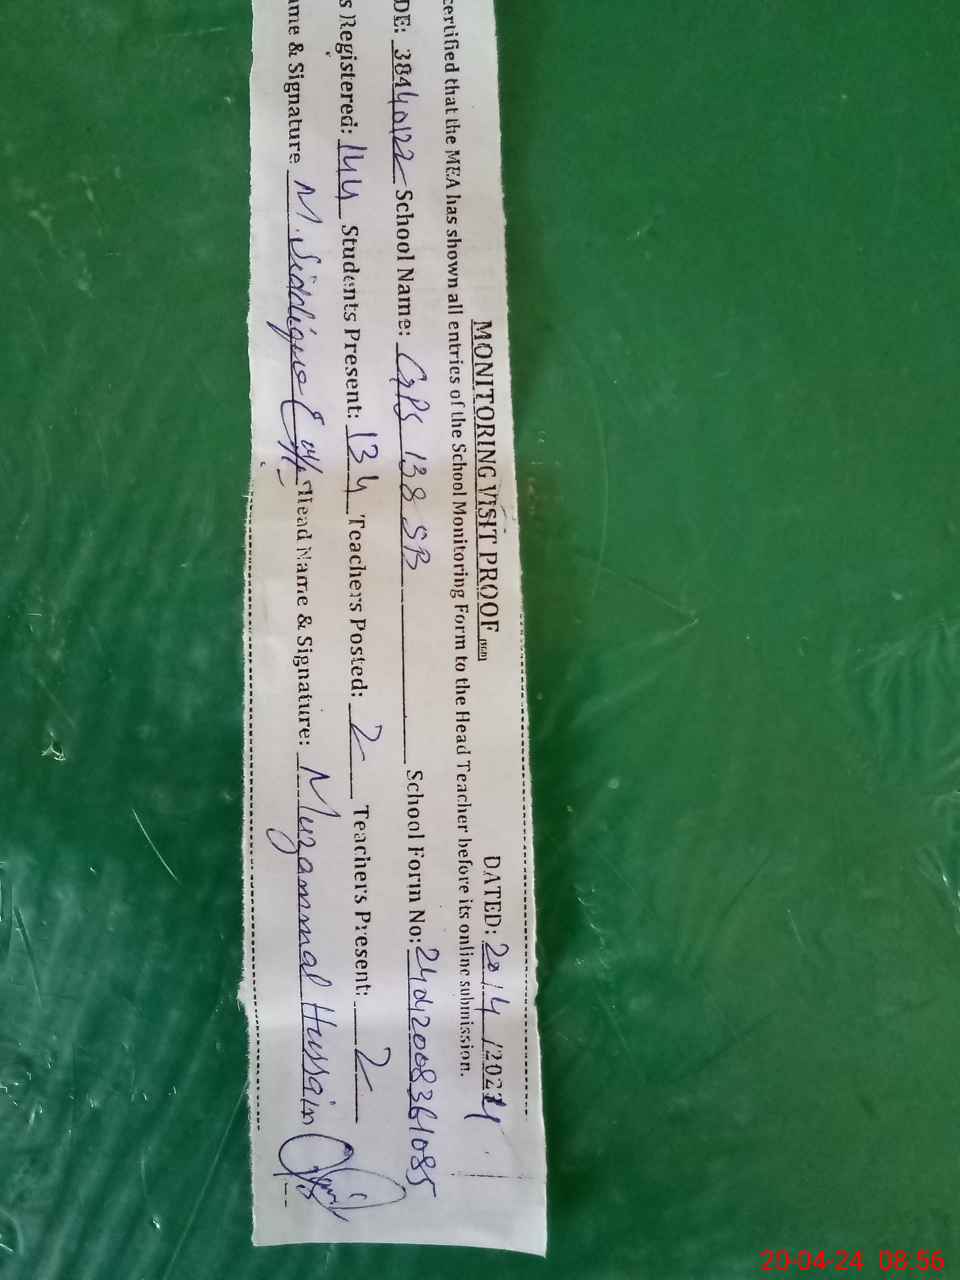 MONITORING VISIT PROOF DATED: 20/4/2024
certified that the MEA has shown all entries of the School Monitoring Form to the Head Teacher before its online submission.
DE: 38440122 School Name: GPS 138 SB School Form No: 24042008361085
s Registered: 144 Students Present: 134 Teachers Posted: 2 Teachers Present: 2
ame & Signature M. Siddique Head Name & Signature: Muzammal Hussain
20-04-24 08:56